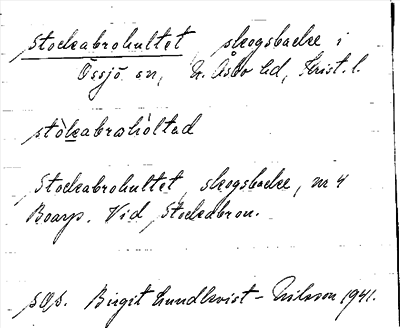 Stockabrohultet skogsbacke i
Össjö sn, N. Åsbo hd, Krist. l.
stòkabrωhòltəd
Stockabrohultet, skogsbacke, m 4
Boarp. Vid Stockabron.
sOp. Birgit Lundkvist-Nilsson 1941.